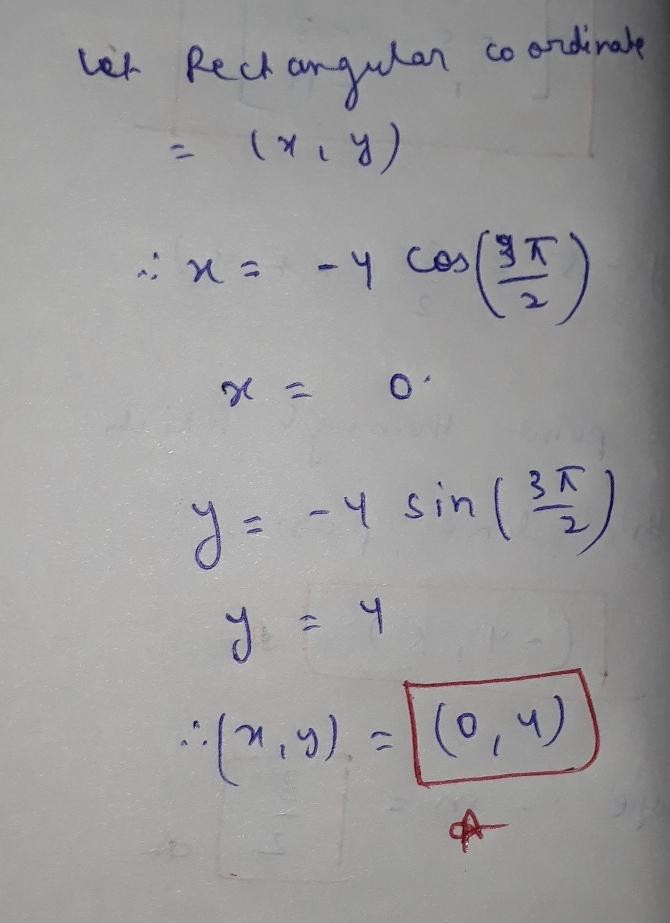 let Rectangular coordinate
= (x, y)
∴ x = -4 cos(3π/2)
x = 0.
y = -4 sin(3π/2)
y = 4
∴ (x, y) = (0, 4)